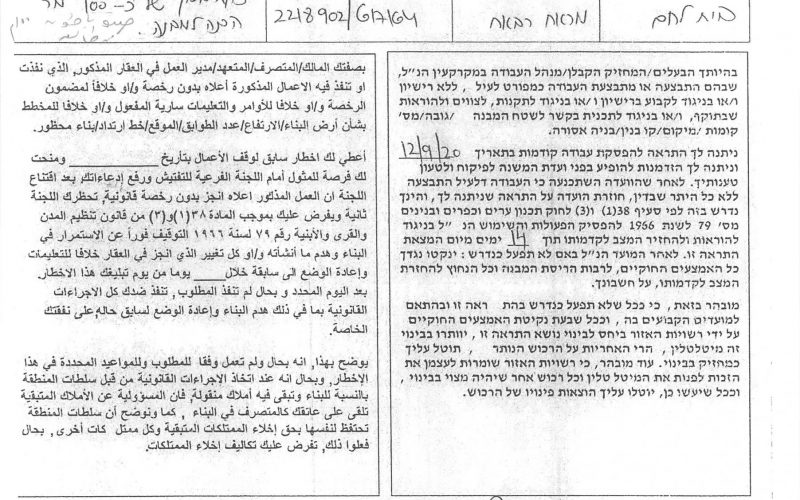 בית לחם
מראח רבאח
2218902/617164
של כ-100 מר
הכנה למבנה.
בהיותך הבעלים/המחזיק הקבלן/מנהל העבודה במקרקעין הנ"ל,
שבהם התבצעה או מתבצעת העבודה כמפורט לעיל , ללא רישיון
ו/או בניגוד לקבוע ברישיון ו/או בניגוד לתקנות, לצווים ולהוראות
שבתוקף, ו/או בניגוד לתכנית בקשר לשטח המבנה /גובה/מס'
קומות /מיקום/קו בנין/בניה אסורה.
ניתנה לך התראה להפסקת עבודה קודמות בתאריך 12/9/20
וניתנה לך הזדמנות להופיע בפני ועדת המשנה לפיקוח ולטעון
טענותיך. לאחר שהוועדה השתכנעה כי העבודה דלעיל התבצעה
ללא כל היתר שבדין, חוזרת הועדה על התראה שניתנה לך, והינך
נדרש בזה לפי סעיף 38(1) ו(3) לחוק תכנון ערים וכפרים ובנינים
מס' 79 לשנת 1966 להפסיק הפעולות והשימוש הנ"ל בניגוד
להוראות ולהחזיר המצב לקדמותו תוך 14 ימים מיום המצאת
התראה זו. לאחר המועד הנ"ל באם לא תפעל כנדרש : ינקטו נגדך
כל האמצעים החוקיים, לרבות הריסת המבנה וכל הנחוץ להחזרת
המצב לקדמותו, על חשבונך.
מובהר בזאת, כי ככל שלא תפעל כנדרש בהת ראה זו ובהתאם
למועדים הקבועים בה , וככל שבעת נקיטת האמצעים החוקיים
על ידי רשויות האזור ביחס לבינוי נושא התראה זו, יוותרו בבינוי
זה מיטלטלין, הרי האחריות על הרכוש הנותר , תוטל עליך
כמחזיק בבינוי. עוד מובהר, כי רשויות האזור שומרות לעצמן את
הזכות לפנות את המיטל טלין וכל רכוש אחר שיהיה מצוי בבינוי ,
וככל שיעשו כן, יוטלו עליך הוצאות פינויו של הרכוש.
بصفتك المالك/المتصرف/المتعهد/مدير العمل في العقار المذكور, الذي نفذت
او تنفذ فيه الاعمال المذكورة أعلاه بدون رخصة و/او خلافاً لمضمون
الرخصة و/او خلافا للأوامر والتعليمات سارية المفعول و/او خلافا للمخطط
بشأن أرض البناء/الارتفاع/عدد الطوابق/الموقع/خط ارتداد/بناء محظور.
أعطي لك اخطار سابق لوقف الأعمال بتأريخ ____________ ومنحت
لك فرصة للمثول أمام اللجنة الفرعية للتفتيش ورفع إدعاءاتك, بعد اقتناع
اللجنة ان العمل المذكور اعلاه انجز بدون رخصة قانونية, تحظرك اللجنة
ثانية ويفرض عليك بموجب المادة ٣٨(١)و(٣) من قانون تنظيم المدن
والقرى والأبنية رقم ٧٩ لسنة ١٩٦٦ التوقيف فوراً عن الاستمرار في
البناء وهدم ما أنشأته و/او كل تغيير الذي انجز في العقار خلافا للتعليمات
وإعادة الوضع الى سابقة خلال_____ يوما من يوم تبليغك هذا الاخطار.
بعد اليوم المحدد و بحال لم تنفذ المطلوب, تنفذ ضدك كل الاجراءات
القانونية بما في ذلك هدم البناء وإعادة الوضع لسابق حاله,على نفقتك
الخاصة.
يوضح بهذا, انه بحال ولم تعمل وفقا للمطلوب وللمواعيد المحددة في هذا
الإخطار, وبحال انه عند اتخاذ الإجراءات القانونية من قبل سلطات المنطقة
بالنسبة للبناء وتبقى فيه أملاك منقولة, فان المسؤولية عن الأملاك المتبقية
تلقى على عاتقك كالمتصرف في البناء , كما ونوضح أن سلطات المنطقة
تحتفظ لنفسها بحق إخلاء الممتلكات المتبقية وكل ممتل كات أخرى, بحال
فعلوا ذلك, تفرض عليك تكاليف إخلاء الممتلكات.